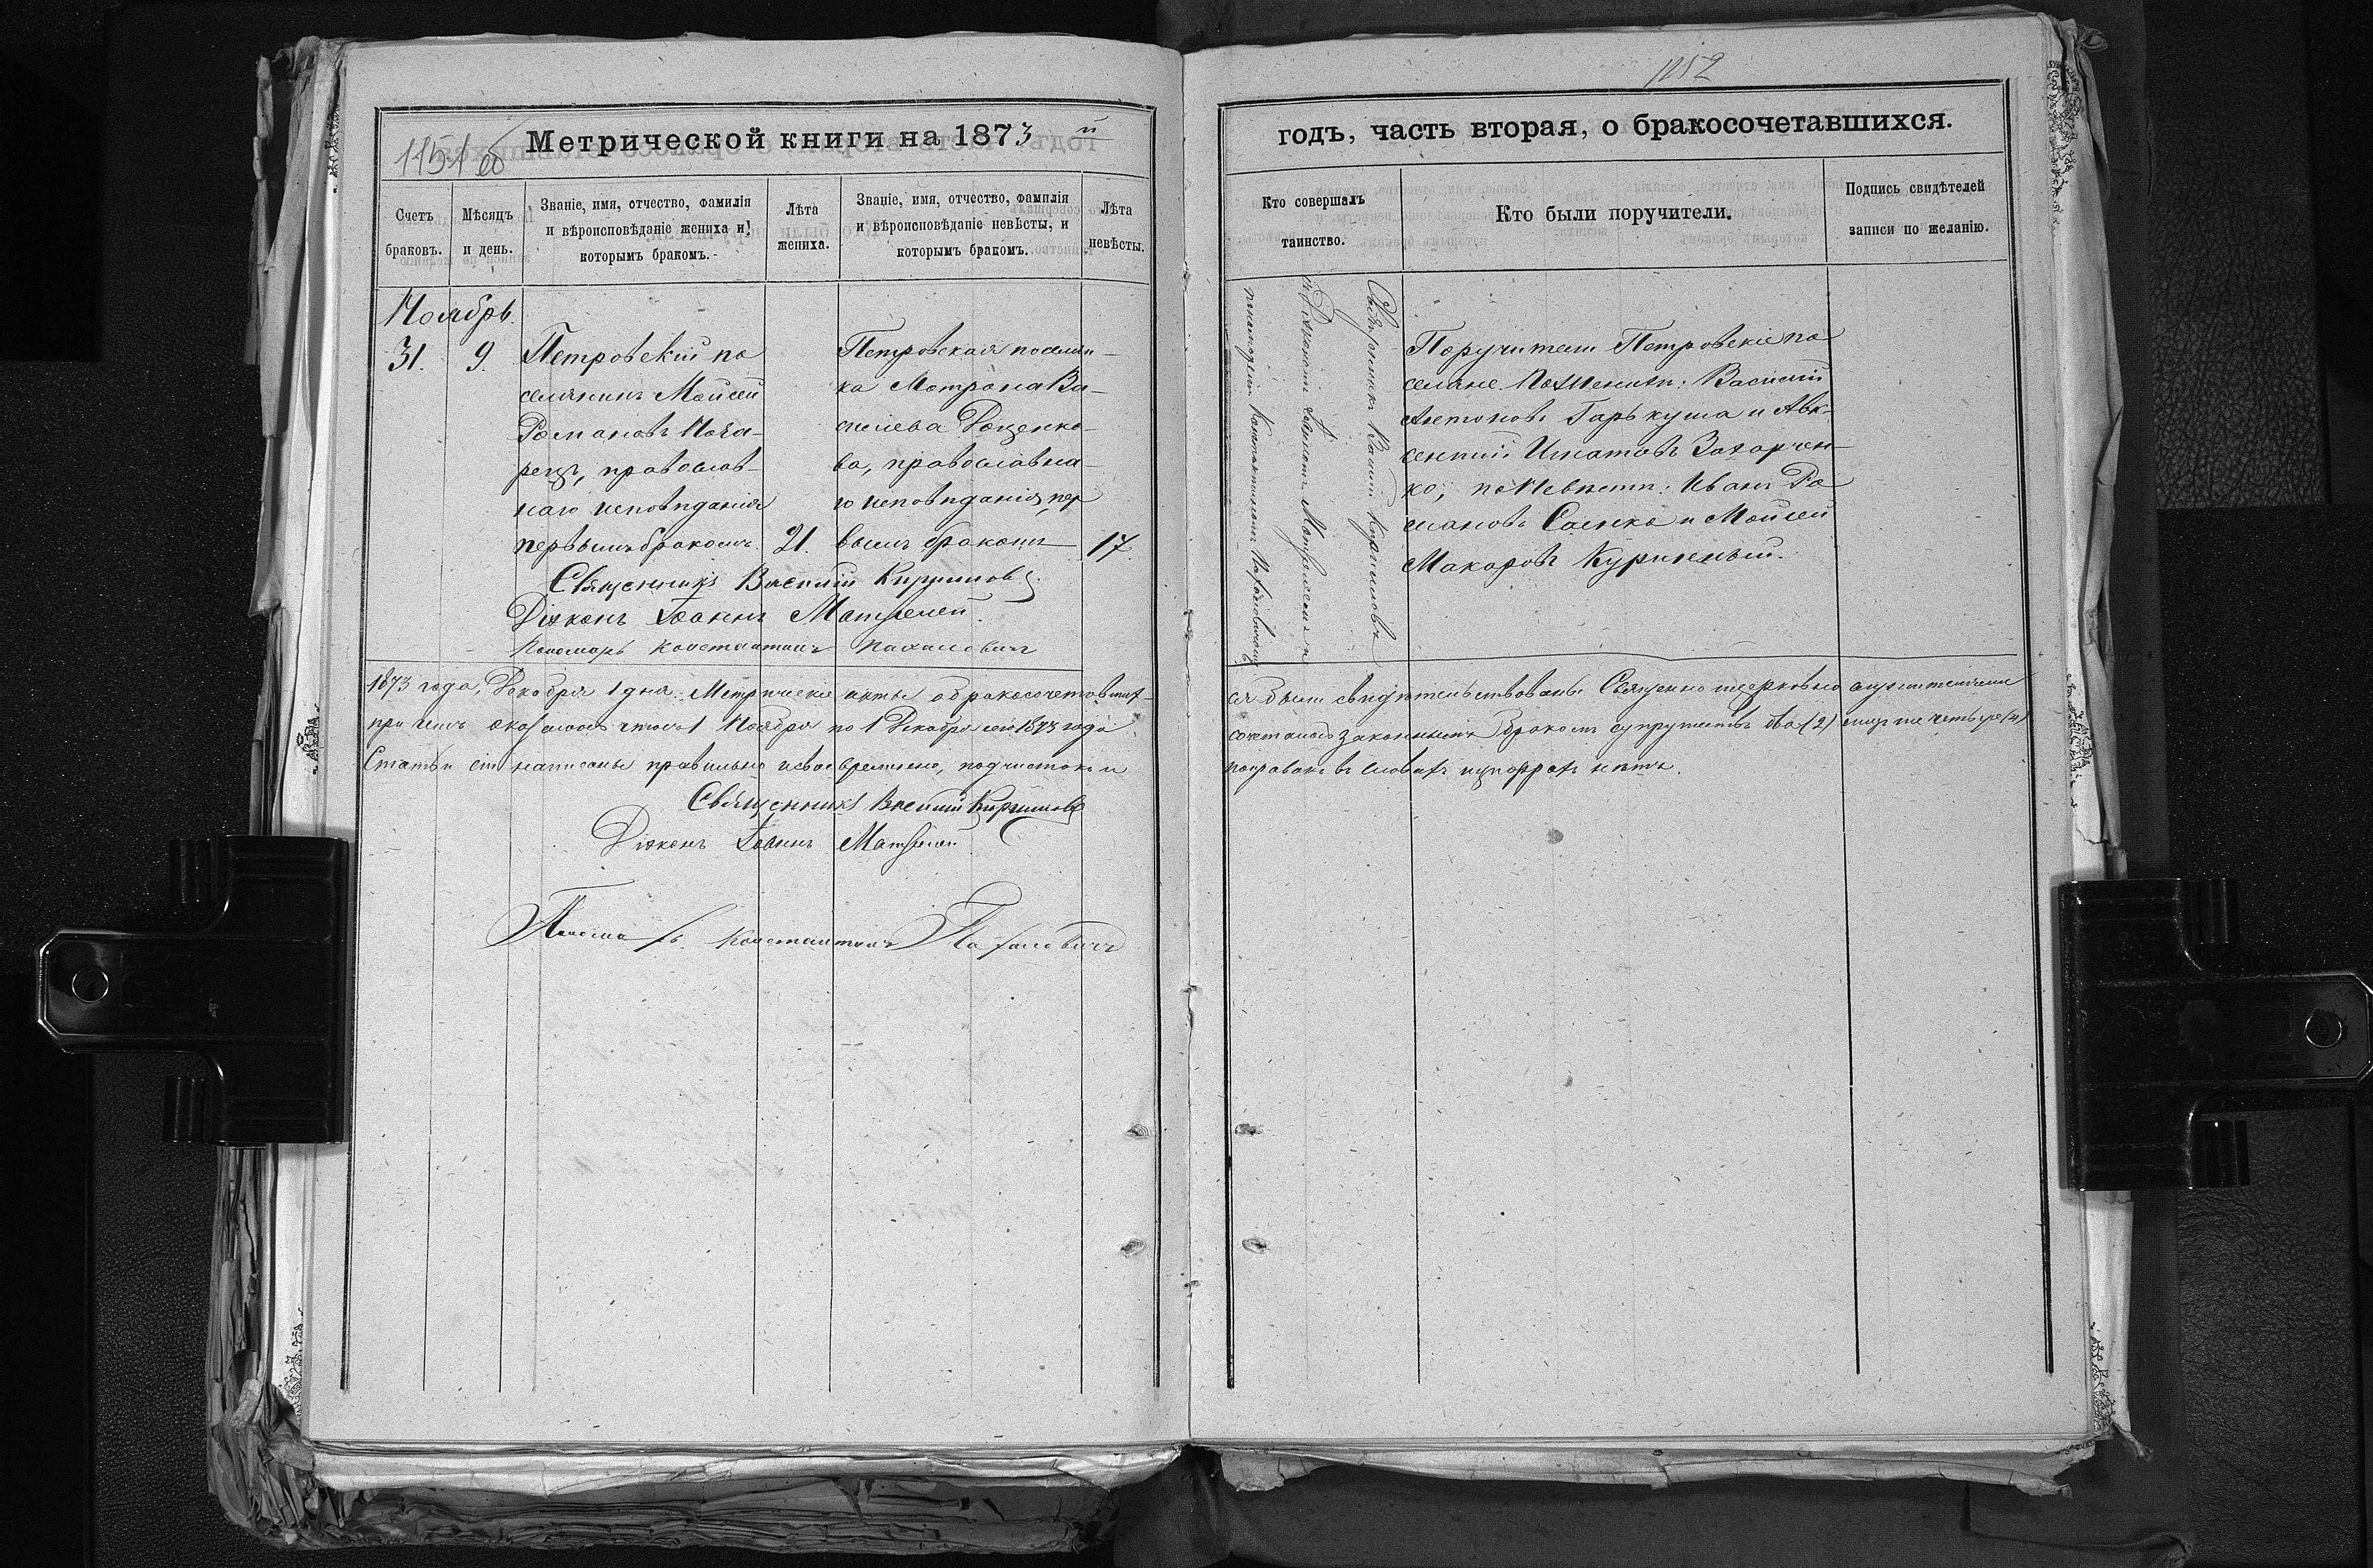 1151 об
Метрической книги на 1873 й
Счетъ браковъ.
Мѣсяцъ и день.
Званіе, имя, отчество, фамилія и вѣроисповѣданіе жениха и которымъ бракомъ.
Лѣта жениха.
Званіе, имя, отчество, фамилія и вѣроисповѣданіе невѣсты, и которымъ бракомъ.
Лѣта невѣсты.
Ноябрь.
31.
9.
Петровскій по
селянинъ Мойсей
Романовъ
православ-
наго исповѣданія
первымъ бракомъ.
21.
Петровская поселян-
ка Мотрона Ва-
силева Доценко-
ва, православна-
го исповѣданія, пер
вымъ бракомъ
17.
Священникъ Василій Кирилловъ.
Діяконъ Іоаннъ
Пономарь Константинъ
1873 года, Декабря 1 дня. Метрическіе акты о бракосочетавших-
при чемъ оказалось что съ 1 Ноября по 1 Декабря сего 1873 года
Статьи сіи написаны правильно и своевременно, подчистокъ и
Священникъ Василій Кирилловъ
Діяконъ Іоаннъ
Пономарь Константинъ
1152
годъ, часть вторая, о бракосочетавшихся.
Кто совершалъ таинство.
Кто были поручители.
Подпись свидѣтелей записи по желанію.
Священникъ Василій Кирилловъ
съ Діякономъ Іоанномъ
пономаремъ Константиномъ
Поручители Петровскіе по
селяне. По Женихѣ: Василій
Антоновъ Гарькуша и Авк-
сентій Игнатовъ Захарчен-
ко; по Невѣстѣ: Иванъ Ро
мановъ Саенко и Мойсей
Макаровъ Куриленый.
ся были свидѣтельствованы Священно церковно служителями
сочеталось законнымъ бракомъ супружествъ два (2) лицъ же четыре (4)
поправокъ въ словахъ и цифрахъ нѣтъ.